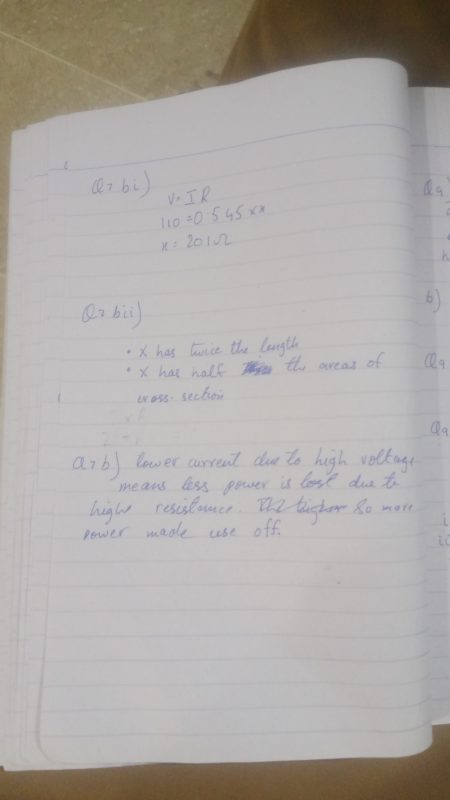 Q7 bi)
V = IR
110 = 0.545 × x
x = 201Ω
Q7 bii)
• X has twice the length
• X has half the areas of
cross-section
Q7 b) lower current due to high voltage
means less power is lost due to
highe resistance. So more
power made use off.
Qa
b)
Qa
Qa
i
ii